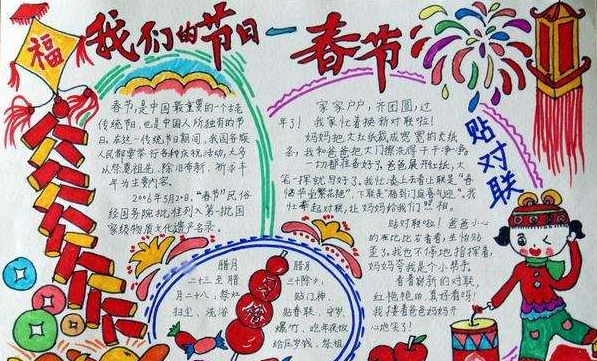 福
我们的节日一春节
春节,是中国最重要的个古老
传统节,也是中国人所独有的节
日。在这一传统节日期间,我国各族
人民都要举行各种庆祝活动,大多
以祭奠祖先、除旧布新、祈求丰
年为主要内容。
2006年5月20日,"春节"民俗
经国务院批准列入第一批国
家级物质文化遗产名录。
家家户户,齐团圆,过
年了!我家忙着换新对联啦!
妈妈把大红纸裁成宽宽的大纸
条;我和爸爸把大门擦洗得干干净净
一切都准备好了。爸爸展开红纸,大
笔一挥就写好了。我忙凑上去看上联是"春
下联是"福到门庭喜气迎"。我
起对联,让妈妈给我们照相。
贴对联
贴对联啦!爸爸小心
右看看,生怕贴
歪了。我也不停地指挥着,
妈妈夸我是个小帮手。
看着崭新的对联
红艳艳的,真好看呀!
我搂着爸爸妈妈开
心地笑了!
腊月
二十三至腊
月二十八:祭灶
扫尘、洗浴
腊月
三十除夕:
贴门神、
贴春联、守岁、
爆竹、吃年夜饭
给压岁钱、祭祖